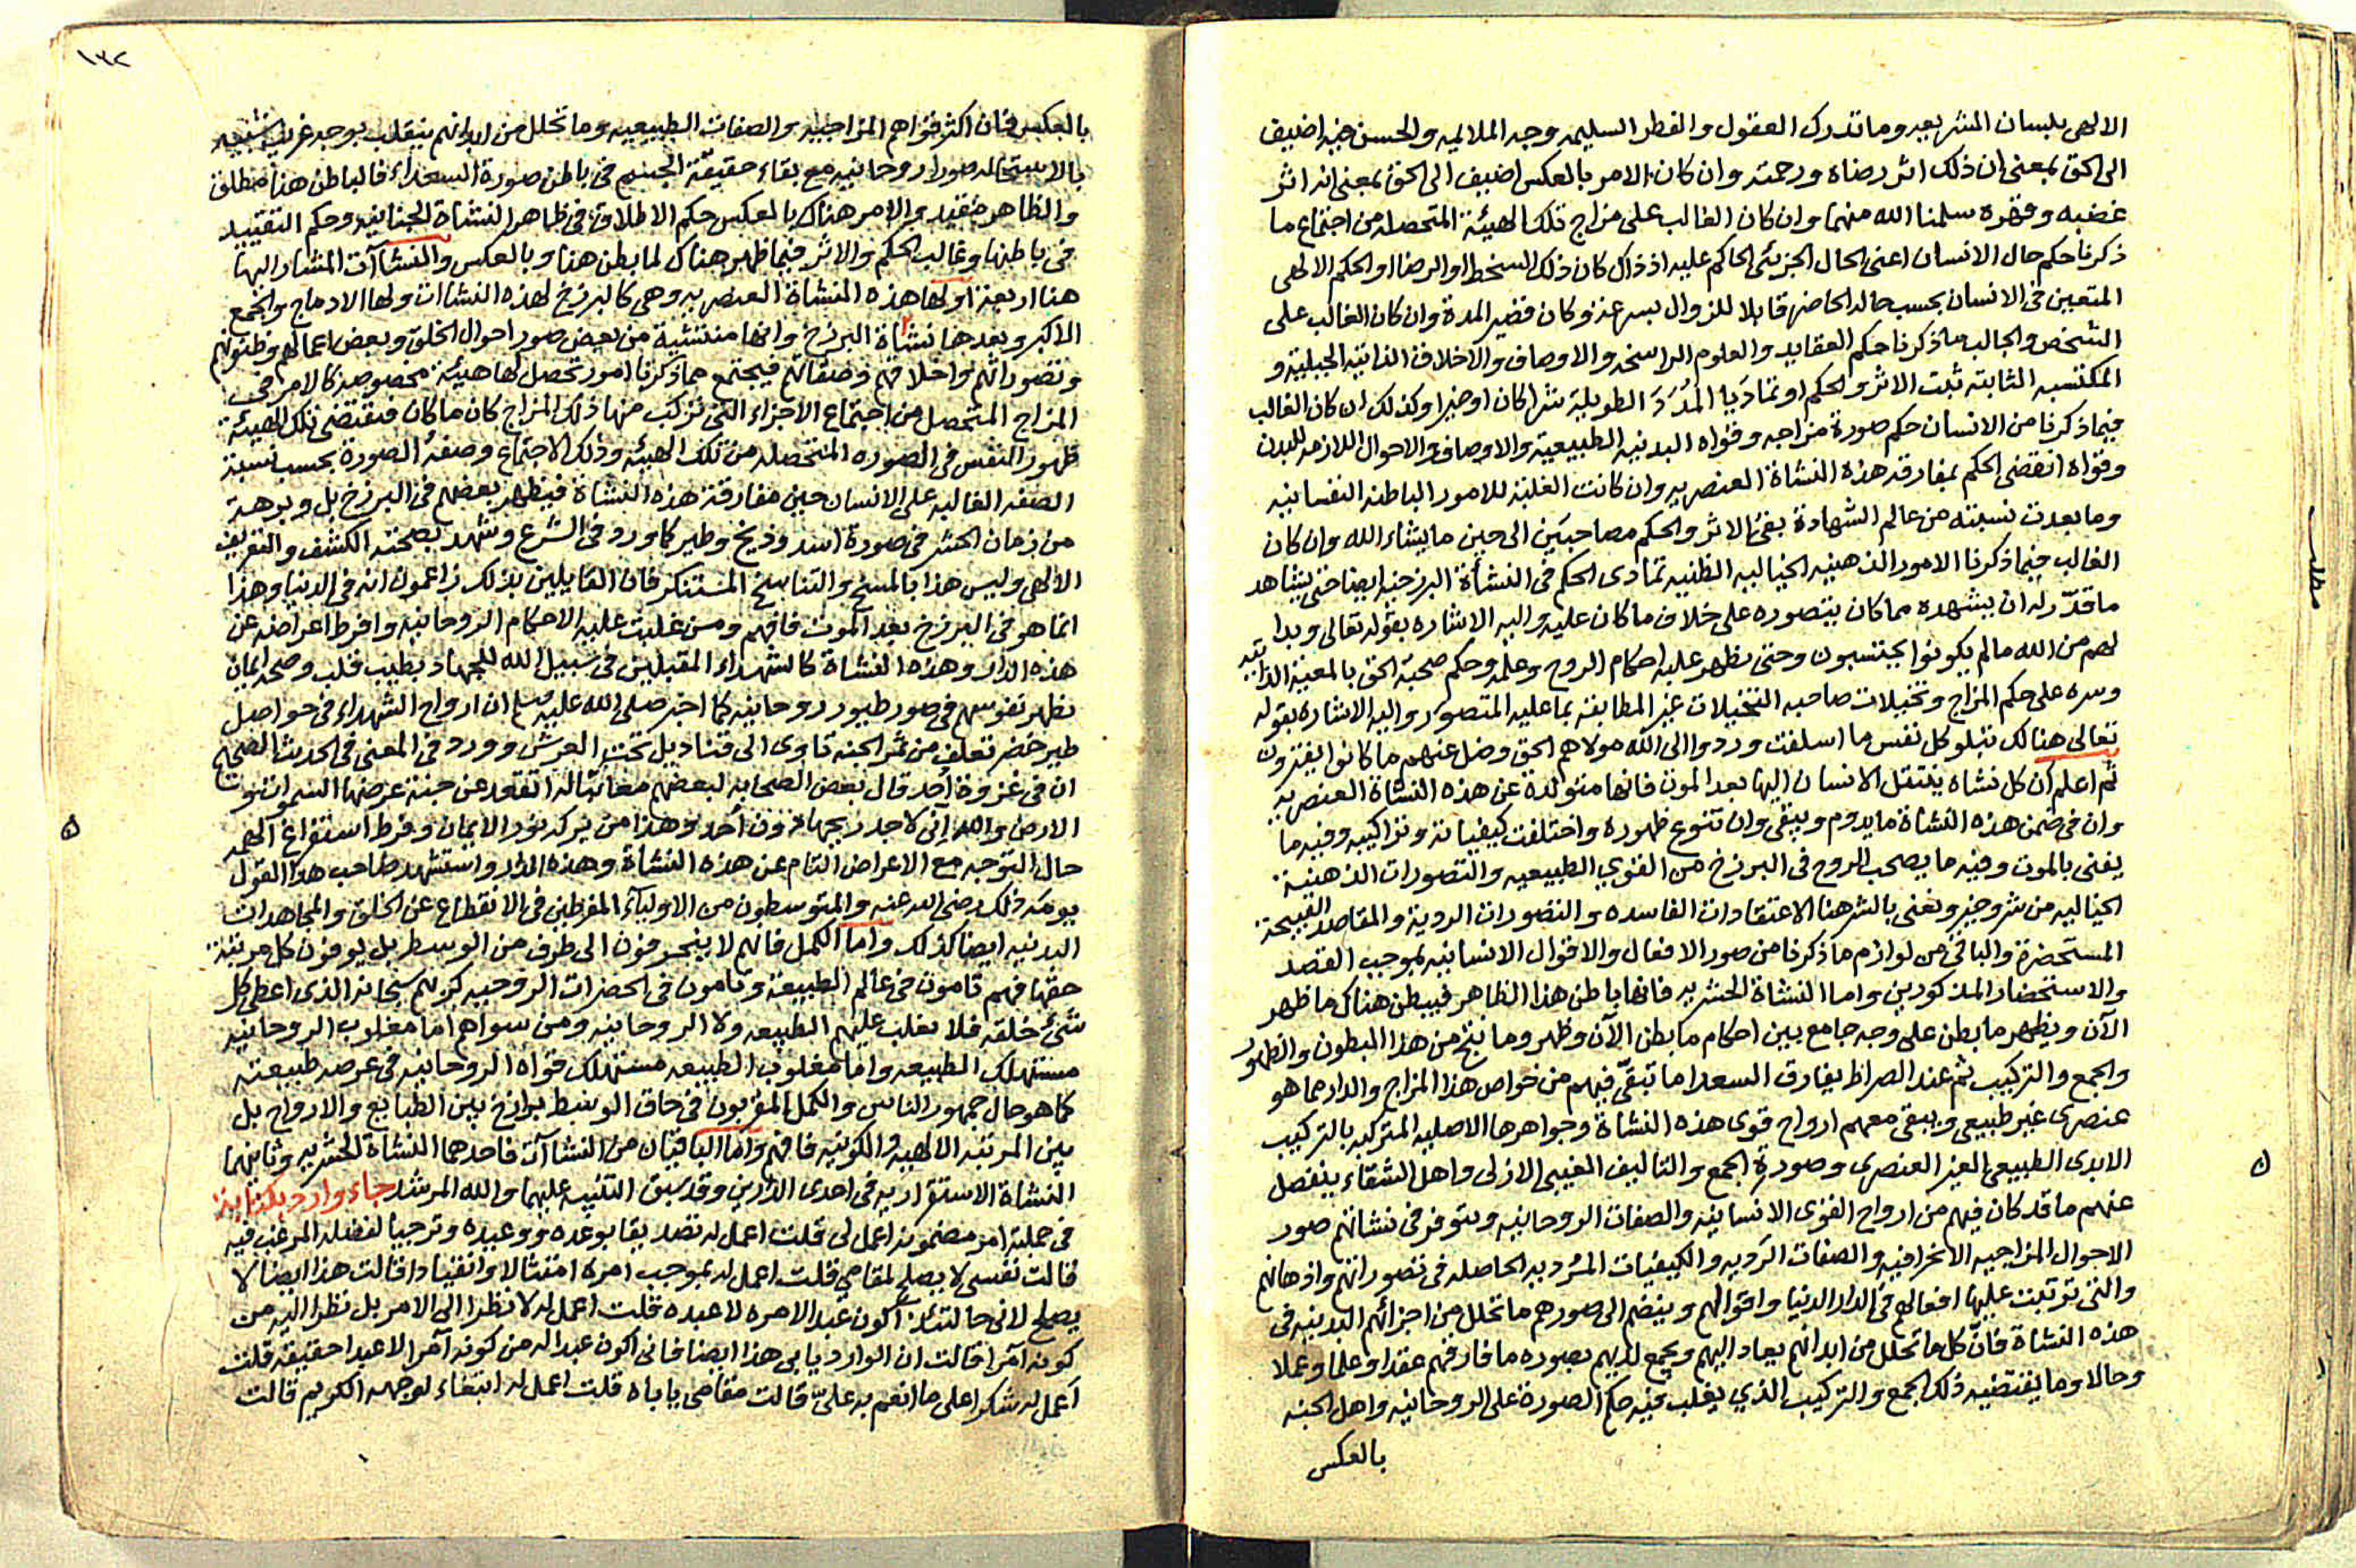 الالهى بلسان الشريعه وما تدرك العقول والفطر السليمه وجه الملايمه والحسن فيه اضيف
الى الحق بمعنى ان ذلك اثر رضاه ورحمته وان كان الامر بالعكس اضيف الى الحق بمعنى انه اثر
غضبه وقهره سلمنا الله منهما وان كان الغالب على مزاج تلك الهيئة المتحصله من اجتماع ما
ذكرنا حكم حال الانسان اعنى الحال الجزئى الحاكم عليه اذ ذاك كان ذلك السخط او الرضا او الحكم الالهى
المتعين فى الانسان بحسب حاله الحاضر قابلا للزوال بسرعة وكان قصير المدة وان كان الغالب على
الشخص والجالب ما ذكرنا حكم العقايد والعلوم الراسخه والاوصاف والاخلاق الذاتية الجبلية و
المكتسبه الثابته ثبت الاثر والحكم او تماديا المُدَدَ الطويلة شرا كان او خيرا وكذلك ان كان الغالب
فيما ذكرنا من الانسان حكم صورة مزاجه وقواه البدنيه الطبيعية والاوصاف والاحوال اللازمه للبدن
وقواه انقضى الحكم بمفارقة هذه النشاة العنصريه وان كانت الغلبة للامور الباطنه النفسانيه
وما بعدت نسبته من عالم الشهادة بقى الاثر والحكم مصاحبَين الى حين ما يشاء الله وان كان
الغالب فيما ذكرنا الامور الذهنيه الخياليه الظنيه تمادى الحكم فى النشأة البرزخيه ايضا حتى يشاهد
ما قدّر له ان يشهده مما كان يتصوره على خلاف ما كان عليه واليه الاشاره بقوله تعالى وبدا
لهم من الله ما لم يكونوا يحتسبون وحتى يظهر غلبة احكام الروح وعلمه وحكم صحبة الحق بالمعية الذاتيه
وسره على حكم المزاج وتخيلات صاحبه التخيلات غير المطابقة بما عليه المتصور واليه الاشاره بقوله
تعالى هنالك تبلو كل نفس ما اسلفت وردوا الى الله مولاهم الحق وضل عنهم ما كانوا يفترون
ثم اعلم ان كل نشاه ينتقل الانسان اليها بعد الموت فانها متولدة عن هذه النشاة العنصريه
وان فى ضمن هذه النشاة ما يدوم ويبقى وان تنوع ظهوره واختلفت كيفياته وتراكيبه وفيه ما
يفنى بالموت وفيه ما يصحب الروح فى البرزخ من القوي الطبيعيه والتصورات الذهنية
الخياليه من شر وخير ونعنى بالشر هنا الاعتقادات الفاسده والتصورات الردية والمقاصد القبيحة
المستحضرة والباقى من لوازم ما ذكرنا من صور الافعال والاقوال الانسانيه بموجب القصد
والاستحضار المذكورين واما النشاة الحشريه فانها باطن هذا الظاهر فيبطن هناك ما ظهر
الآن ويظهر ما بطن على وجه جامع بين احكام ما بطن الآن وظهر وما نتج من هذا البطون والظهور
والجمع والتركيب ثم عند الصراط يفارق السعدا ما تبقّى فيهم من خواص هذا المزاج والدار مما هو
عنصرى غير طبيعى ويبقى معهم ارواح قوى هذه النشاة وجواهرها الاصليه المتركبه بالتركيب
الابدى الطبيعى الغير العنصرى وصورة الجمع والتاليف الغيبى الازلى واهل الشقاء ينفصل
عنهم ما قد كان فيهم من ارواح القوى الانسانية والصفات الروحانيه ويتوفر فى نشاتهم صور
الاحوال المزاجيه الانحرافيه والصفات الرديه والكيفيات المُرديه الحاصله فى تصوراتهم واذهانهم
والتى ترتبت عليها افعالهم فى الدار الدنيا واقوالهم وينضم الى صورهم ما تحلل من اجزائهم البدنيه فى
هذه النشاة فانّ كل ما تحلل من ابدانهم يعاد اليهم ويجمع لديهم بصوره ما فارقهم عقدا وعلما وعملا
وحالا وما يقتضيه ذلك الجمع والتركيب الذي يغلب فيه حكم الصورة على الروحانيه واهل الجنه
بالعكس
مطلب
١٣٢
بالعكس فان اكثر قواهم المزاجيه والصفات الطبيعيه وما تحلل من ابدانهم ينقلب بوجه غريب شبيه
بالاستحاله صورا روحانيه مع بقاء حقيقة الجسم فى باطن صورة السعداء فالباطن هنا مطلق
والظاهر مقيد والامر هناك بالعكس حكم الاطلاق فى ظاهر النشاة الجنانيه وحكم التقييد
فى باطنها وغالب الحكم والاثر فيما ظهر هناك لما بطن هنا وبالعكس والنشاآت المشار اليها
هنا اربعة اولها هذه النشاة العنصريه وهى كالبرزخ لهذه النشاات ولها الادماج والجمع
الاكبر وبعدها نشاة البرزخ وانها منتشية من بعض صور احوال الخلق وبعض اعمالهم وظنونهم
وتصوراتهم واخلاقهم وصفاتهم فيجتمع مما ذكرنا امور تحصل لها هيئة مخصوصه كالامر فى
المزاج المتحصل من اجتماع الاجزاء التى تركب منها ذلك المزاج كان ما كان فتقتضى تلك الهيئة
ظهور النفس فى الصوره المتحصله من تلك الهيئه وذلك الاجتماع وصفة الصورة بحسب نسبة
الصفه الغالبه على الانسان حين مفارقة هذه النشاة فيظهر بعضهم فى البرزخ بل وبرهة
من زمان الحشر فى صورة اسد وذيخ وطير كما ورد فى الشرع وشهد بصحته الكشف والتعريف
الالهى وليس هذا بالمسخ والتناسخ المستنكر فان القايلين بذلك زاعمون انه فى الدنيا وهذا
انما هو فى البرزخ بعد الموت فافهم ومن غلبت عليه الاحكام الروحانيه وافرط اعراضه عن
هذه الدار وهذه النشاة كالشهداء المقبلين فى سبيل الله للجهاد بطيب قلب وصحة ايمان
تظهر نفوسهم فى صور طيور روحانيه كما اخبر صلى الله عليه وسلم ان ارواح الشهداء فى حواصل
طير خضر تعلف من ثمر الجنه تاوى الى قناديل تحت العرش وورد فى المعنى فى الحديث الصحيح
ان فى غزوة أحد قال بعض الصحابه لبعضهم معاتبا له اتقعد عن جنة عرضها السموات و
الارض والله انى لاجد ريحها دون أحد وهذا من بركة نور الايمان وفرط استفراغ الهمه
حال التوجه مع الاعراض التام عن هذه النشأة وهذه الدار واستشهد صاحب هذا القول
يومه ذلك رضى الله عنه والمتوسطون من الاولياء المفرطين فى الانقطاع عن الخلق والمجاهدات
البدنيه ايضا كذلك واما الكمل فانهم لا ينحرفون الى طرف من الوسط بل يوفون كل مرتبة
حقها فهم تامون فى عالم الطبيعة وتامون فى الحضرات الروحيه كربهم سبحانه الذى اعطى كل
شئ خلقه فلا يغلب عليهم الطبيعه ولا الروحانيه ومن سواهم اما مغلوب الروحانيه
مستهلك الطبيعه واما مغلوب الطبيعه مستهلك قواه الروحانيه فى عرصه طبيعته
كما هو حال جمهور الناس والكمل المقربون فى حاق الوسط برازخ بين الطبايع والارواح بل
بين المرتبه الالهيه والكونيه فافهم واما الباقيتان من النشاآت فاحدهما النشاة الحشريه وثانيهما
النشاة الاستقراريه فى احدى الدارين وقد سبق التنبيه عليهما والله المرشد جاء وارد بكتابة
فى جملته امر مضمونه اعمل لى قلت اعمل له تصديقا بوعده ووعيده وترجيا لفضله المرغب فيه
قالت نفسى لا يصلح لمقامى قلت اعمل له بموجب امره امتثالا وانقيادا قالت هذا ايضا لا
يصلح لانى حالتئذ اكون عبد الامره لا عبده قلت اعمل له لا نظرا الى الامر بل نظرا اليه من
كونه آمرا قالت ان الوارد يابى هذا ايضا فانى اكون عبدا له من كونه آمرا لا عبدا حقيقة قلت
اعمل له شكرا على ما انعم به علىّ قالت مقامى ياباه قلت اعمل له ابتغاء لوجهه الكريم قالت